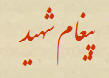 پیغام شهید